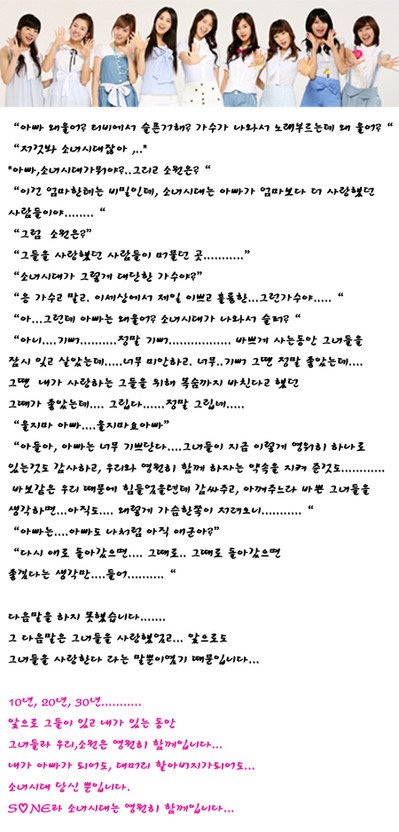 “아빠 왜울어? 티비에서 슬픈거해? 가수가 나와서 노래부르는데 왜 울어? “
“저것봐 소녀시대잖아 ,..*
*아빠,소녀시대가뭐야?..그리고 소원은? “
“이건 엄마한테는 비밀인데, 소녀시대는 아빠가 엄마보다 더 사랑했던
사람들이야........ “
“그럼 소원은?”
“그들을 사랑했던 사람들이 머물던 곳...........”
“소녀시대가 그렇게 대단한 가수야?”
“응 가수고 말고. 이세상에서 제일 이쁘고 훌륭한...그런가수야..... “
“아...그런데 아빠는 왜울어? 소녀시대가 나와서 슬퍼? “
“아니....기뻐..........정말 기뻐................. 바쁘게 사는동안 그녀들을
잠시 잊고 살았는데.....너무 미안하고. 너무..기뻐 그땐 정말 좋았는데....
그땐 내가 사랑하는 그들을 위해 목숨까지 바친다고 했던
그때가 좋았는데.... 그립다......정말 그립네.....
“울지마 아빠....울지마요아빠”
“아들아, 아빠는 너무 기쁘단다....그녀들이 지금 이렇게 영원히 하나로
있는것도 감사하고, 우리와 영원히 함께 하자는 약속을 지켜 준것도............
바보같은 우리 때문에 힘들었을텐데 감싸주고, 아껴주느라 바쁜 그녀들을
생각하면...아직도.... 왜렇게 가슴한쪽이 저려오니........... “
“아빠는....아빠도 나처럼 아직 애군아?”
“다시 애로 돌아갔으면.... 그때로.. 그때로 돌아갔으면
좋겠다는 생각만....들어.......... “
다음말을 하지 못했습니다.......
그 다음말은 그녀들을 사랑했었고... 앞으로도
그녀들을 사랑한다 라는 말뿐이였기 때문입니다...
10년, 20년, 30년...........
앞으로 그들이 있고 내가 있는 동안
그녀들과 우리,소원은 영원히 함께입니다...
내가 아빠가 되어도, 대머리 할아버지가되어도...
소녀시대 당신 뿐입니다.
S♡NE과 소녀시대는 영원히 함께입니다...